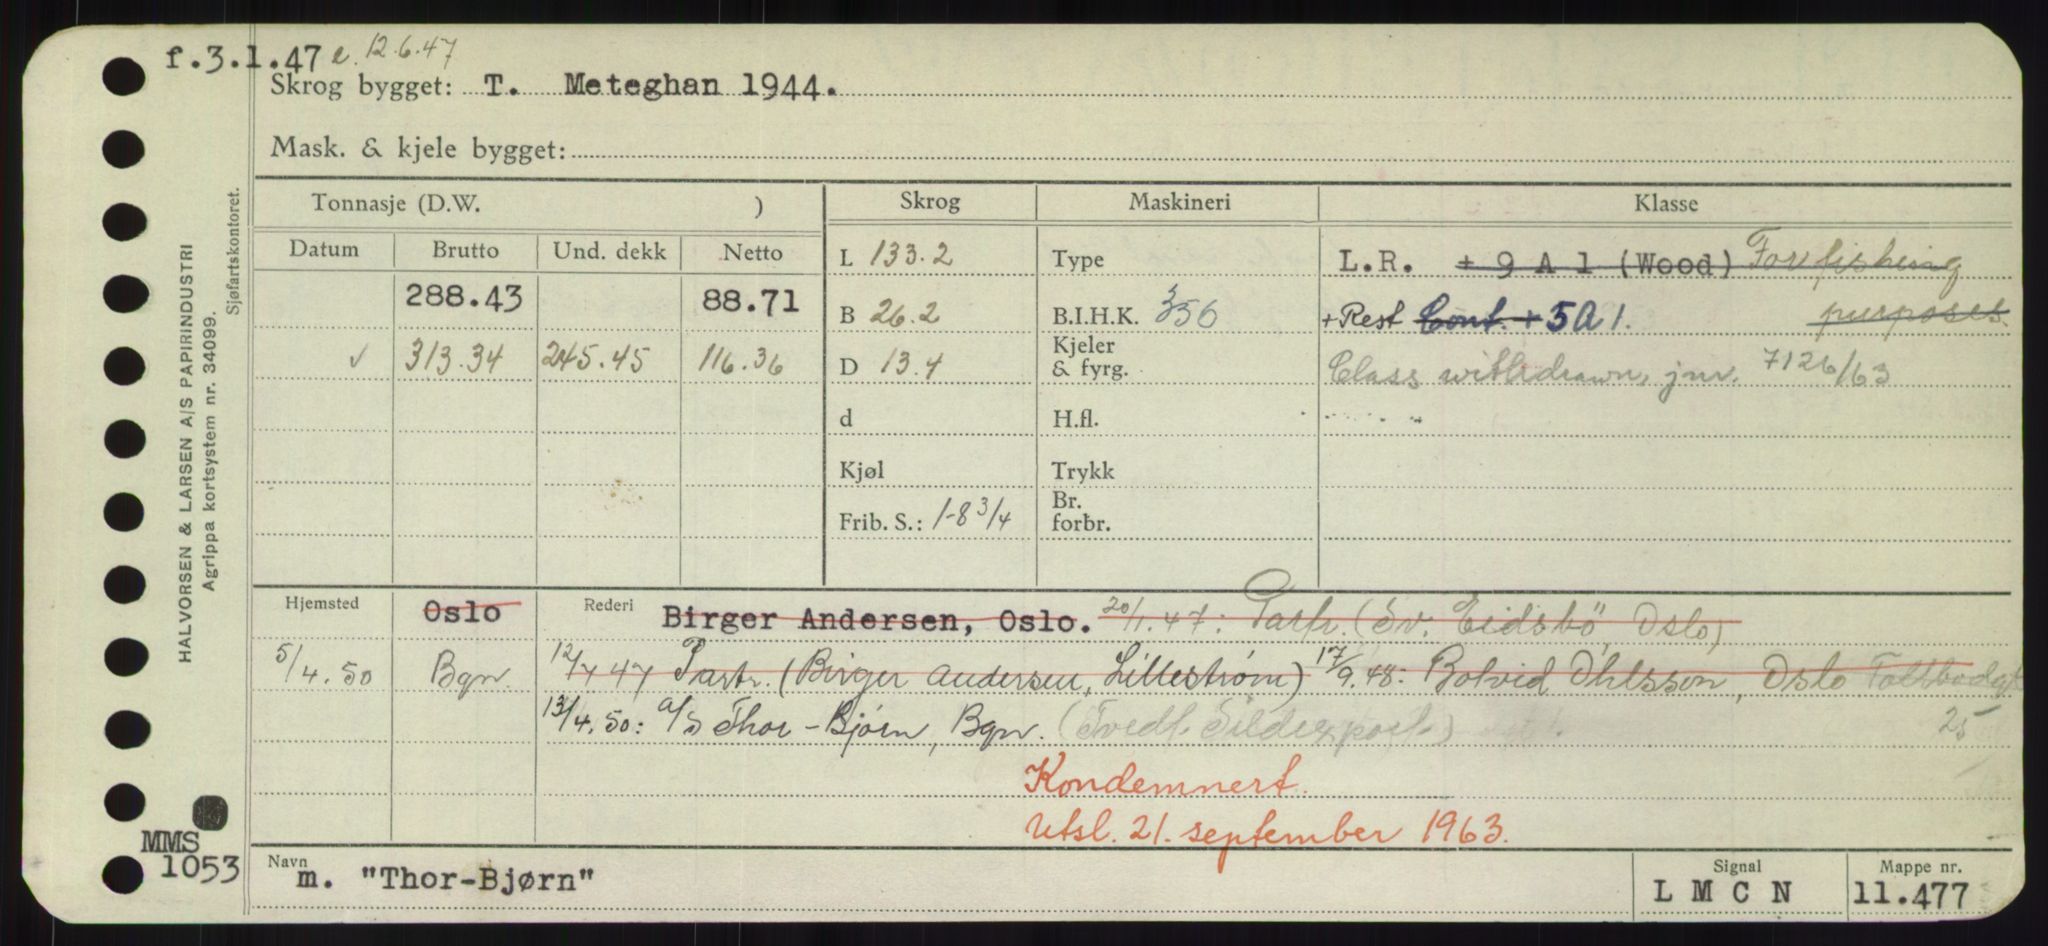 f.3.1.47 e. 12.6.47
Skrog bygget: T. Meteghan 1944.
Mask. & kjele bygget:
Tonnasje (D.W. ) Skrog Maskineri Klasse
Datum Brutto Und. dekk Netto L 133.2 Type L.R. + 9 A 1 (Wood) For fishing
288.43 88.71 B 26.2 B.I.H.K. 356 +Rest Cont. + 5 A 1. purposes.
✓ 313.34 245.45 116.36 D 13.4 Kjeler & fyrg. Class withdrawn, jnr. 7126/63
d H.fl.
Kjøl Trykk
Frib. S.: 1-8 3/4 Br. forbr.
Hjemsted Oslo Rederi Birger Andersen, Oslo. 20/1.47: Partr. (Sv. Eidsbö Oslo)
5/4.50 Bgn. 12/7 47 Partr. (Birger Andersen, Lillestrøm) 17/9.48: Botvid Ohlsson, Oslo Tollbodgt
25
13/4.50: A/S Thor-Bjørn, Bgn. (Tvedt Sildexport)
Kondemnert.
Utsl. 21. september 1963.
Navn m. "Thor-Bjørn" Signal L M C N Mappe nr. 11.477
HALVORSEN & LARSEN A/S PAPIRINDUSTRI
Agrippa kortsystem nr. 34099.
Sjøfartskontoret.
MMS
1053